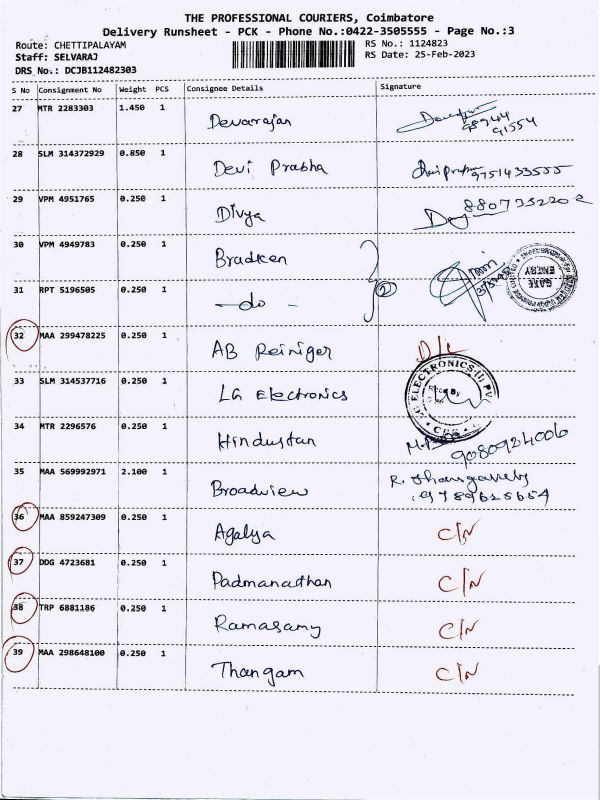 THE PROFESSIONAL COURIERS, Coimbatore
Delivery Runsheet - PCK - Phone No.:0422-3505555 - Page No.:3
Route: CHETTIPALAYAM RS No.: 1124823
Staff: SELVARAJ RS Date: 25-Feb-2023
DRS No.: DCJB112482303
S No Consignment No Weight PCS Consignee Details Signature
27 MTR 2283303 1.450 1 Devarajan
28 SLM 314372929 0.850 1 Devi Prabha 9751433555
29 VPM 4951765 0.250 1 Divya 8807352202
30 VPM 4949783 0.250 1 Bradken
31 RPT 5196505 0.250 1 -do- 2 GATE ENTRY
32 MAA 299478225 0.250 1 AB Reiniger D/L
33 SLM 314537716 0.250 1 LG Electronics
34 MTR 2296576 0.250 1 Hindustan 9080924006
35 MAA 569992971 2.100 1 Broadview
36 MAA 859247309 0.250 1 Agalya C/N
37 DDG 4723681 0.250 1 Padmanathan C/N
38 TRP 6881186 0.250 1 Ramasamy C/N
39 MAA 298648100 0.250 1 Thangam C/N